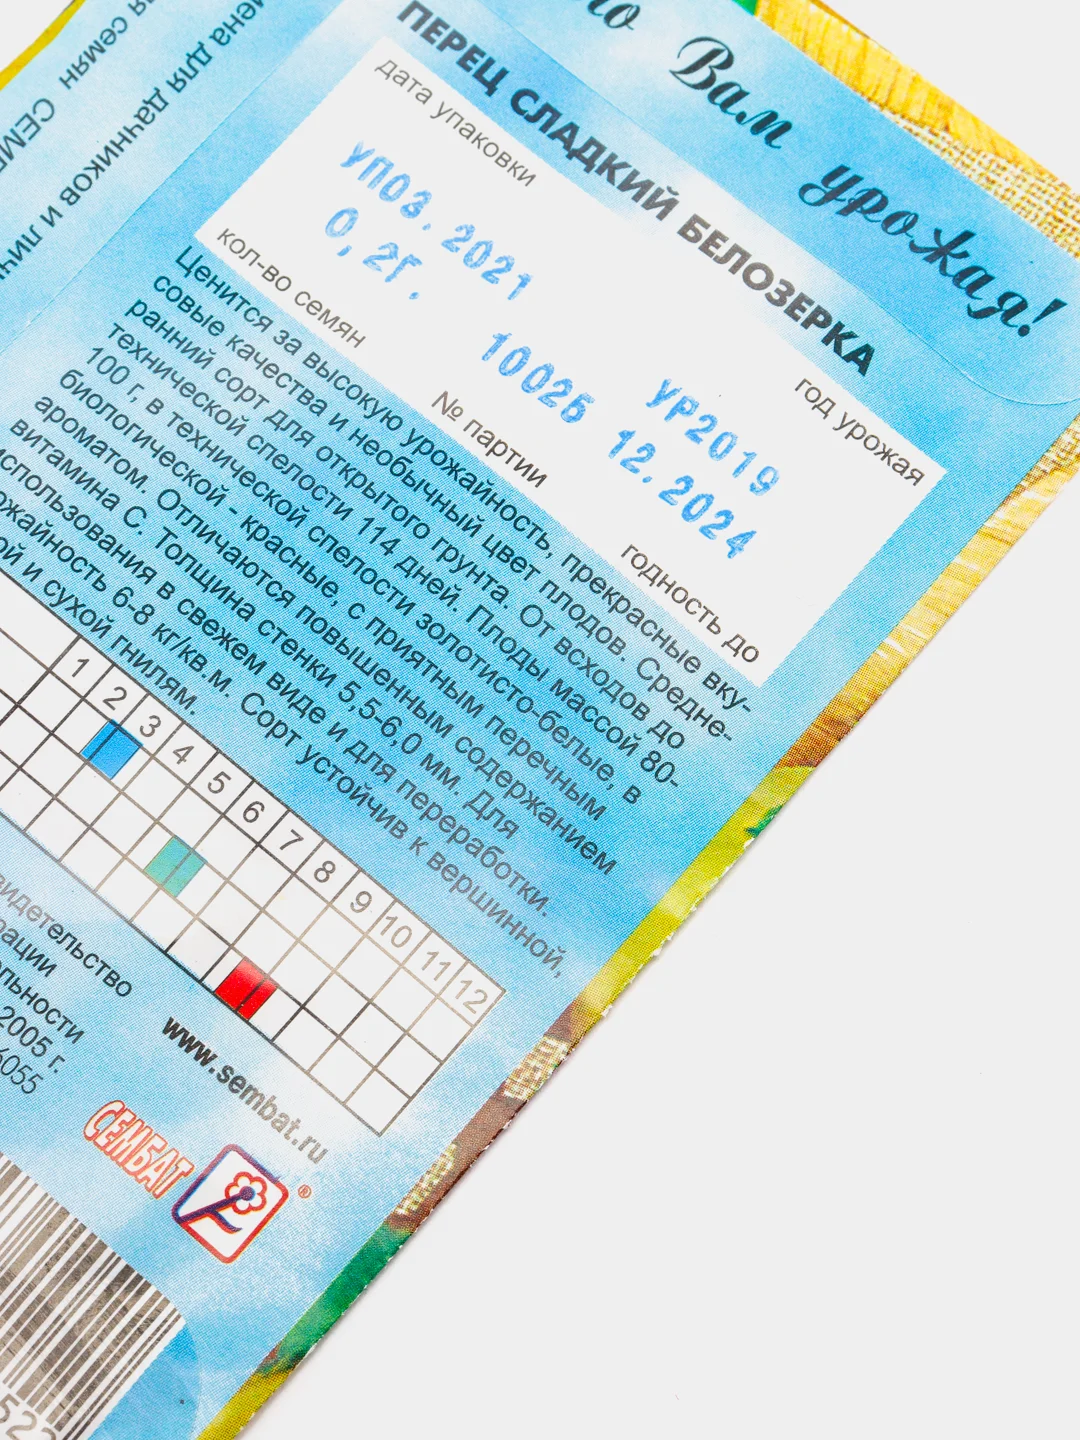 Вам урожая!
ПЕРЕЦ СЛАДКИЙ БЕЛОЗЕРКА
дата упаковки
год урожая
УП03.2021
УР2019
0,2Г.
10025
12.2024
кол-во семян
№ партии
годность до
Ценится за высокую урожайность, прекрасные вку-
совые качества и необычный цвет плодов. Средне-
ранний сорт для открытого грунта. От всходов до
технической спелости 114 дней. Плоды массой 80-
100 г, в технической спелости золотисто-белые, в
биологической - красные, с приятным перечным
ароматом. Отличаются повышенным содержанием
витамина С. Толщина стенки 5,5-6,0 мм. Для
использования в свежем виде и для переработки.
6-8 кг/кв.м. Сорт устойчив к вершинной,
и сухой гнилям.
1 2 3 4 5 6 7 8 9 10 11 12
2005 г.
www.sembat.ru
СЕМБАТ
®
для дачников и
семян